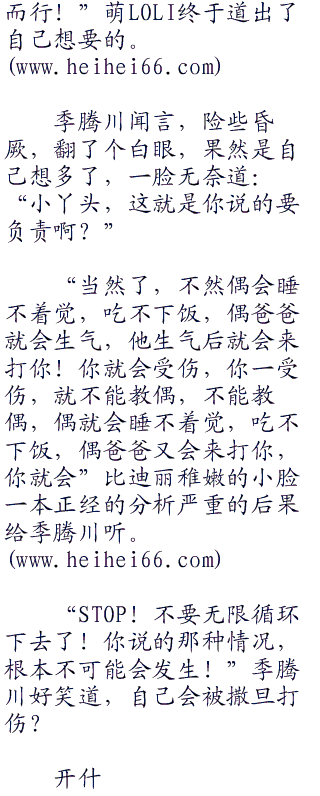 而行！”萌LOLI终于道出了
自己想要的。
(www.heihei66.com)
季腾川闻言，险些昏
厥，翻了个白眼，果然是自
己想多了，一脸无奈道：
“小丫头，这就是你说的要
负责啊？”
“当然了，不然偶会睡
不着觉，吃不下饭，偶爸爸
就会生气，他生气后就会来
打你！你就会受伤，你一受
伤，就不能教偶，不能教
偶，偶就会睡不着觉，吃不
下饭，偶爸爸又会来打你，
你就会”比迪丽稚嫩的小脸
一本正经的分析严重的后果
给季腾川听。
(www.heihei66.com)
“STOP！不要无限循环
下去了！你说的那种情况，
根本不可能会发生！”季腾
川好笑道，自己会被撒旦打
伤？
开什